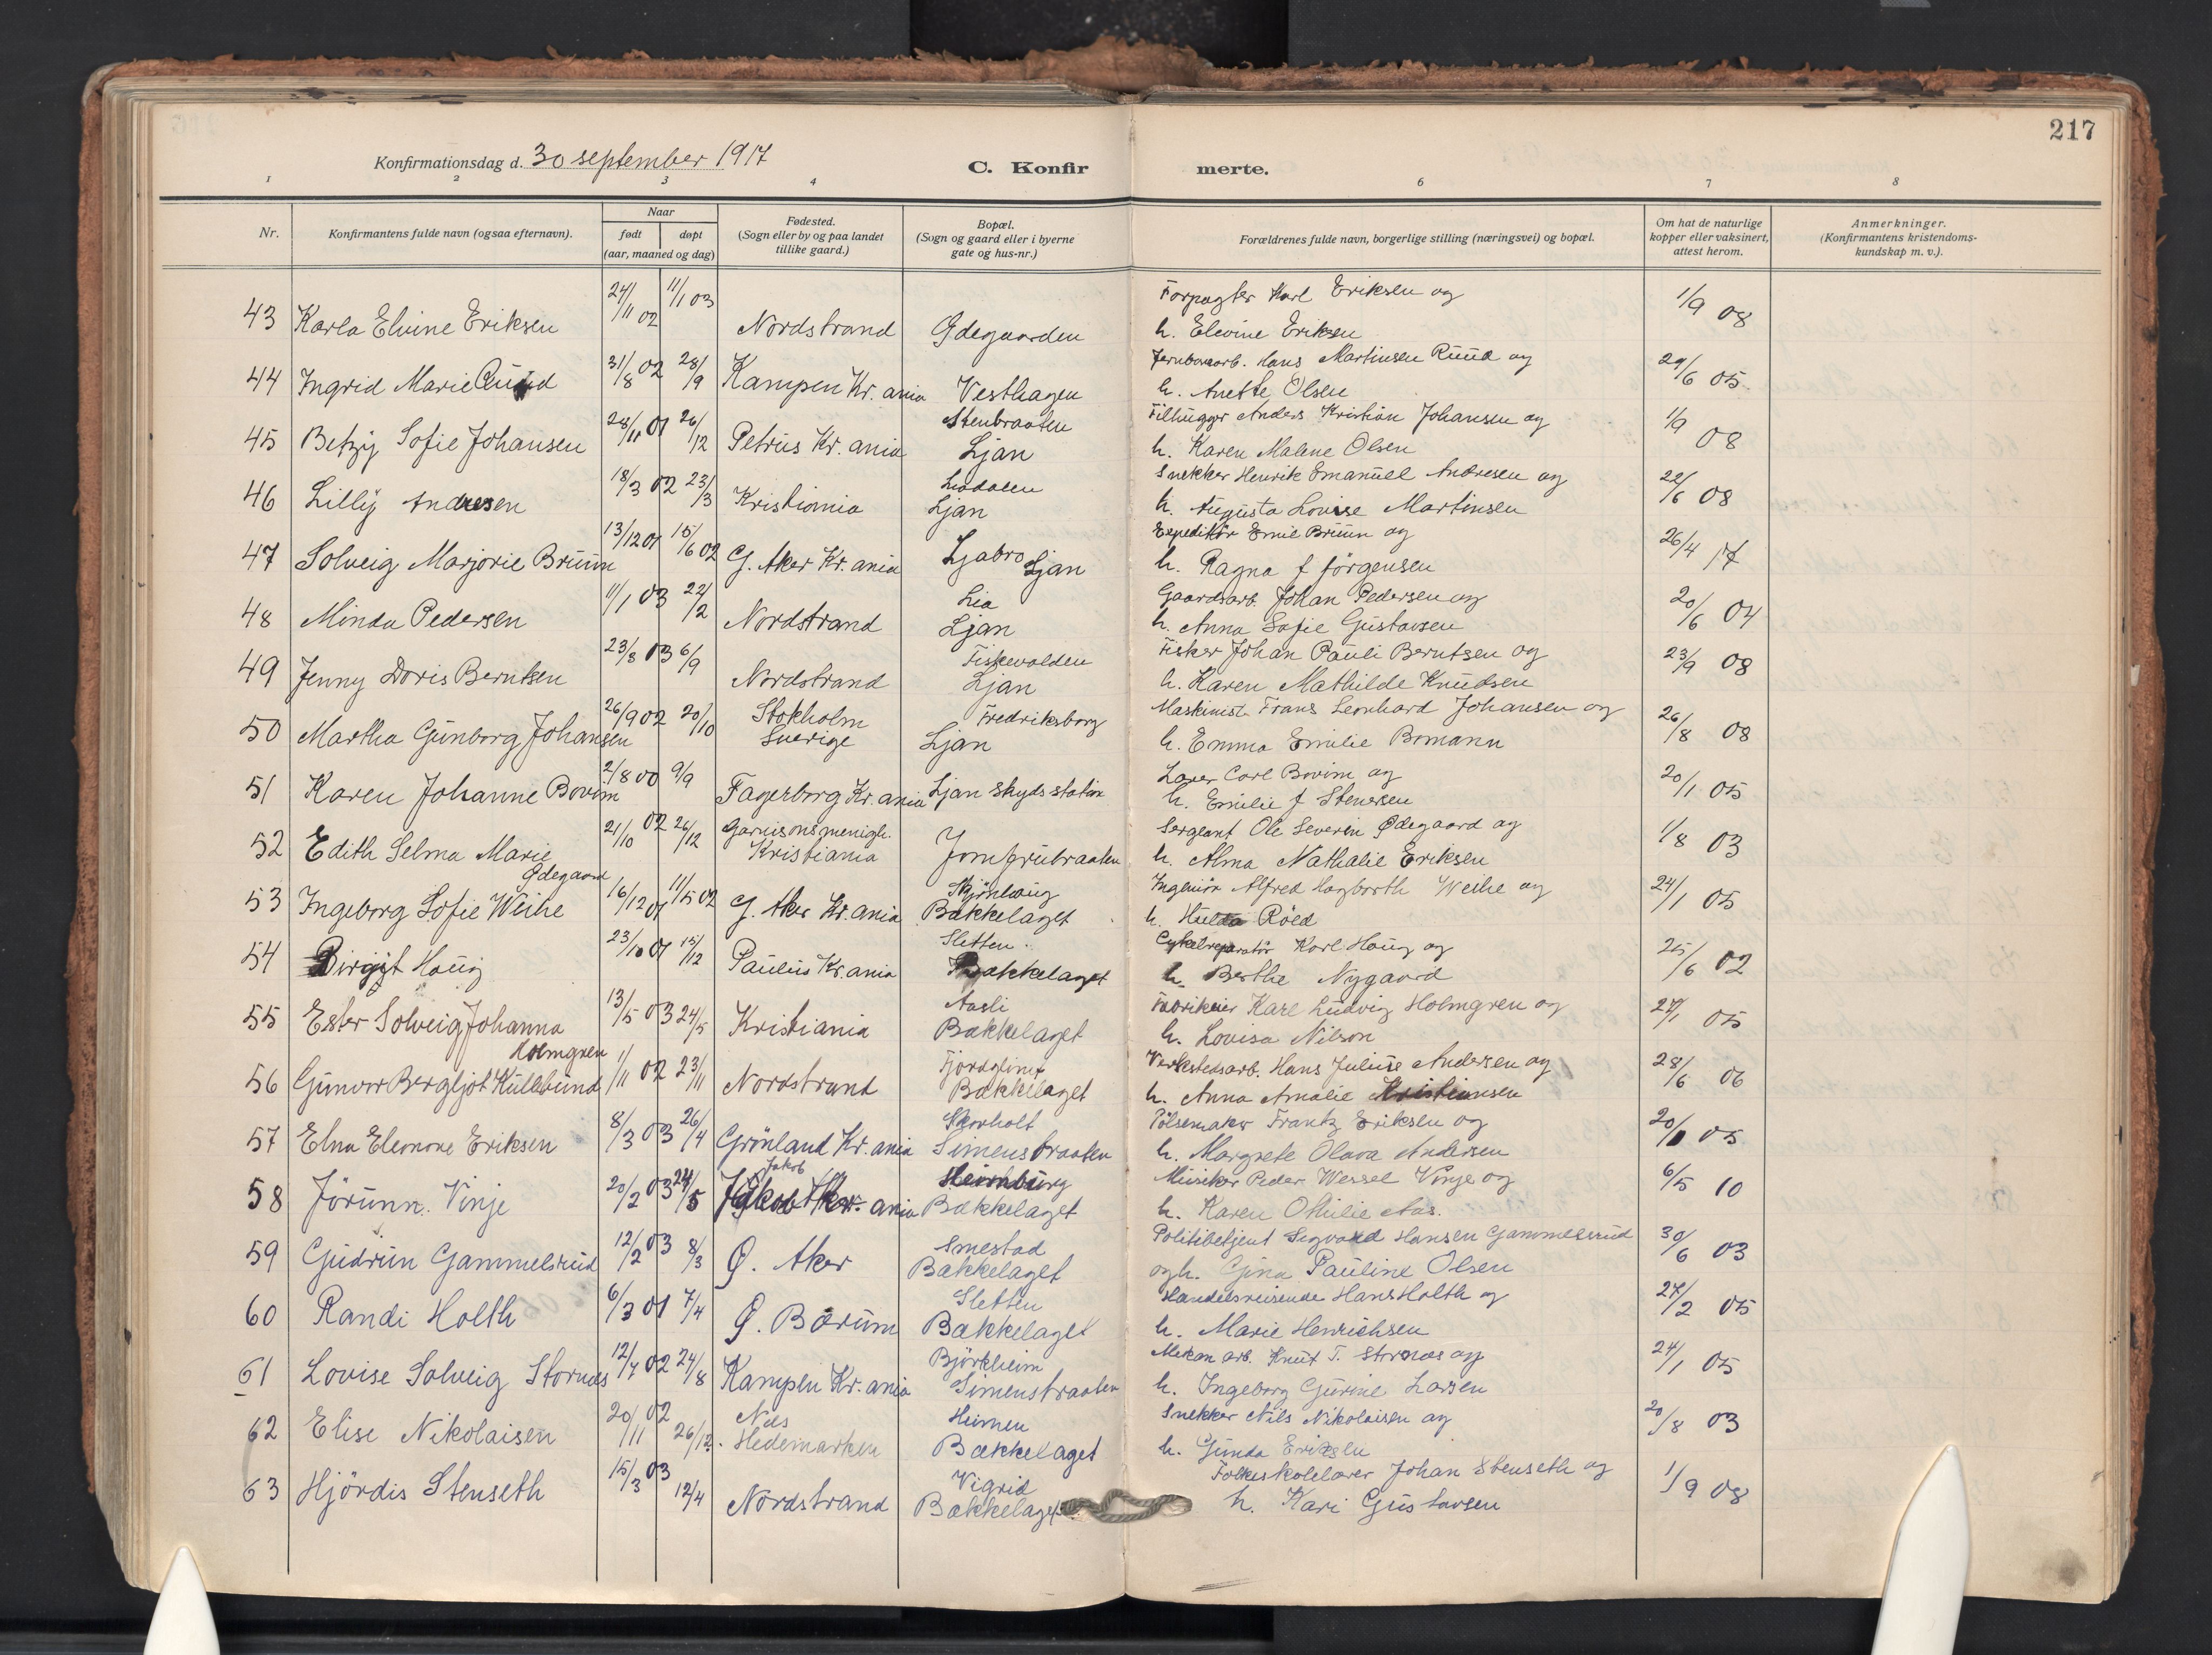 217
Konfirmationsdag d. 30 september 1917
C. Konfirmerte.
1 2 3 4 6 7 8
Nr.
Konfirmantens fulde navn (ogsaa efternavn).
Naar
født døpt
(aar, maaned og dag)
Fødested.
(Sogn eller by og paa landet
tillike gaard.)
Bopæl.
(Sogn og gaard eller i byerne
gate og hus-nr.)
Forældrenes fulde navn, borgerlige stilling (næringsvei) og bopæl.
Om hat de naturlige
kopper eller vaksinert,
attest herom.
Anmerkninger.
(Konfirmantens kristendoms-
kundskap m. v.).
24/11 02 11/1 03 Forpagter Karl Eriksen og 1/9 08
43 Karla Elvine Eriksen Nordstrand Ødegaarden h. Elevine Eriksen
31/8 02 28/9 Jernbanearb. Hans Martinsen Ruud og 29/6 05
44 Ingrid Marie Ruud Kampen Kr. ania Vesthagen h. Anette Olsen
28/11 01 26/12 Stenbraaten Filhugger Anders Kristian Johansen og 1/9 08
45 Betzy Sofie Johansen Petrus Kr. ania Ljan h. Karen Malene Olsen
18/3 02 23/3 Liadalen Snekker Henrik Emanuel Andresen og 22/6 08
46 Lilly Andresen Kristiania Ljan h. Augusta Lovise Martinsen
13/12 01 15/6 02 Expeditør Emil Bruun og 26/4 17
47 Solveig Marjorie Bruun G. Aker Kr. ania Ljabro Ljan h. Ragna f Jörgensen
11/1 03 22/2 Lia Gaardsarb. Johan Pedersen og 20/6 04
48 Minda Pedersen Nordstrand Ljan h. Anna Sofie Gustavsen
23/8 03 6/9 Fiskevolden Fisker Johan Pauli Berntsen og 23/9 08
49 Jenny Doris Berntsen Nordstrand Ljan h. Karen Mathilde Knudsen
26/9 02 20/10 Stokholm Fredriksborg Maskinist Frans Leonhard Johansen og 26/8 08
50 Martha Gunborg Johansen Sverige Ljan h. Emma Emilie Bomann
2/8 00 9/9 Lærer Carl Bovim og 20/1 05
51 Karen Johanne Bovim Fagerborg Kr. ania Ljan Skydsstation h. Emilie f Stenersen
21/10 02 26/12 Garnisonsmenigh. Sergeant Ole Severin Ødegaard og 1/8 03
52 Edith Selma Marie Kristiania Jomfrubraaten h. Alma Nathalie Eriksen
Ødegaard
16/12 01 11/5 02 Ingeniør Alfred Hagbarth Weihe og 24/1 05
53 Ingeborg Sofie Weihe G. Aker Kr. ania Bækkelaget h. Hulda Röed
23/10 01 15/12 Sletten Cykelreparatør Karl Haug og 25/6 02
54 Birgit Haug Paulus Kr. ania Bækkelaget h. Berthe Nygaard
13/5 03 24/5 Aasli Fabrikeier Karl Ludvig Holmgren og 27/1 05
55 Ester Solveig Johanna Kristiania Bækkelaget h. Lovisa Nilson
Holmgren
1/11 02 23/11 Fjordglimt Verkstedsarb. Hans Julius Andersen og 28/6 06
56 Gunvor Bergljot Kullebund Nordstrand Bækkelaget h. Anna Amalie Kristiansen
8/3 03 26/4 Skovholt Pölsemaker Frantz Eriksen og 20/1 05
57 Elna Eleonore Eriksen Grönland Kr. ania Simensbraaten h. Margrete Olava Andersen
20/2 03 24/5 Jakob Heimburg Musiker Peder Wessel Vinje og 6/5 10
58 Jörunn Vinje Jakob Kr. ania Bækkelaget h. Karen Othilie Aas.
12/2 03 8/3 Smestad Politibetjent Segvard Hansen Gammelsrud 30/6 03
59 Gudrun Gammelsrud Ø. Aker Bækkelaget og h. Gina Pauline Olsen
6/3 01 7/4 Sletten Handelsreisende Hans Holth og 27/2 05
60 Randi Holth Ø. Bærum Bækkelaget h. Marie Henrichsen
12/7 02 24/8 Björkheim Mekan arb. Knut T. Stornæs og 24/1 05
61 Lovise Solveig Stornæs Kampen Kr. ania Simensbraaten h. Ingeborg Gurine Larsen
20/11 02 26/12 Nes Heimen Snekker Nils Nikolaisen og 20/8 03
62 Elise Nikolaisen Hedemarken Bækkelaget h. Gunda Eriksen
15/3 03 12/4 Vigrid Folkeskolelærer Johan Stenseth og 1/9 08
63 Hjördis Stenseth Nordstrand Bækkelaget h. Kari Gustavsen